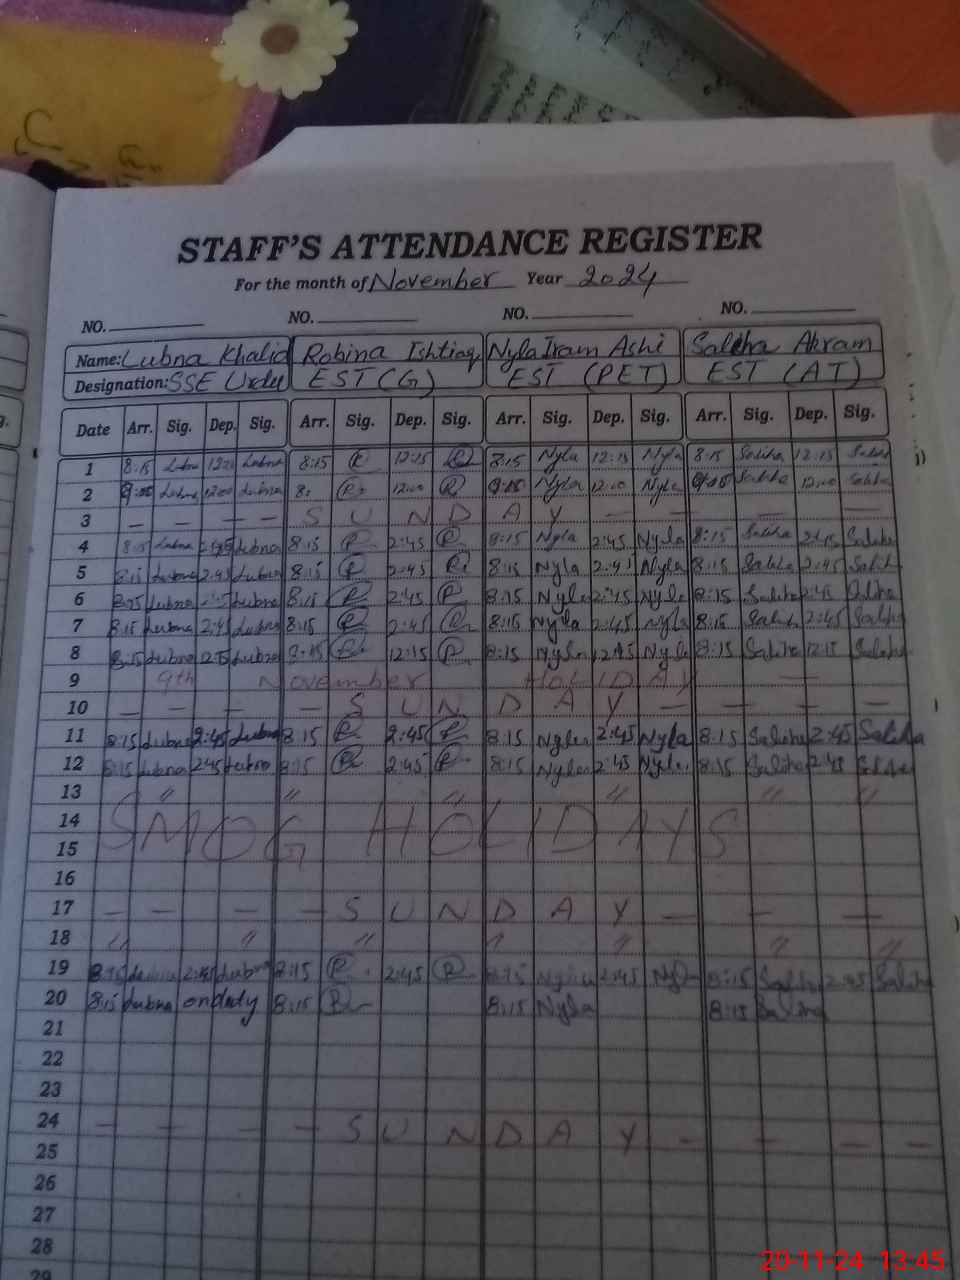 STAFF'S ATTENDANCE REGISTER
For the month of November Year 2024
NO. NO. NO. NO.
Name: Lubna Khalid Robina Ishtiaq Nyla Iram Ashi Saleha Akram
Designation: SSE Urdu EST (G) EST (PET) EST (AT)
Date Arr. Sig. Dep. Sig. Arr. Sig. Dep. Sig. Arr. Sig. Dep. Sig. Arr. Sig. Dep. Sig.
1 8:15 Lubna Lubna 8:15 R 12:15 R 8:15 Nyla 12:15 Nyla 8:15 Saliha 12:15 Saliha
2 9:00 Lubna 12:00 Lubna 8: R 12:00 R Nyla 12:00 Nyla Saliha 12:00 Saliha
3 — — — — S U N D A Y — — — —
4 8:15 Lubna Lubna 8:15 R 2:45 R 8:15 Nyla 2:45 Nyla 8:15 Saliha 2:45 Saliha
5 8:15 Lubna 2:45 Lubna 8:15 R 2:45 R 8:15 Nyla 2:45 Nyla 8:15 Saliha 2:45 Salih
6 8:15 Lubna 2:45 Lubna 8:15 R 2:45 R 8:15 Nyla 2:45 Nyla 8:15 Saliha 2:45 Saliha
7 8:15 Lubna 2:45 Lubna 8:15 R 2:45 R 8:15 Nyla 2:45 Nyla 8:15 Saliha 2:45 Saliha
8 8:15 Lubna Lubna 8:15 R 12:15 R 8:15 Nyla Nyla 8:15 Saliha 12:15 Saliha
9 9th November HOLIDAY —
10 — — — — S U N D A Y — — — —
11 8:15 Lubna 2:45 Lubna 8:15 R 2:45 R 8:15 Nyla 2:45 Nyla 8:15 Saliha 2:45 Saliha
12 8:15 Lubna 2:45 Lubna 8:15 R 2:45 R 8:15 Nyla 2:45 Nyla 8:15 Saliha 2:45 Saliha
13 " " " " " "
14 SMOG HOLIDAYS
15
16
17 — — — — S U N D A Y — — —
18 " " " " " " "
19 8:15 Lubna 2:45 Lubna 8:15 R 2:45 R 8:15 Nyla 2:45 Nyla 8:15 Saliha 2:45 Saliha
20 8:15 Lubna onduty 8:15 R 8:15 Nyla 8:15 Saliha
21
22
23
24 — — — — S U N D A Y — — — —
25
26
27
28
29
20-11-24 13:45